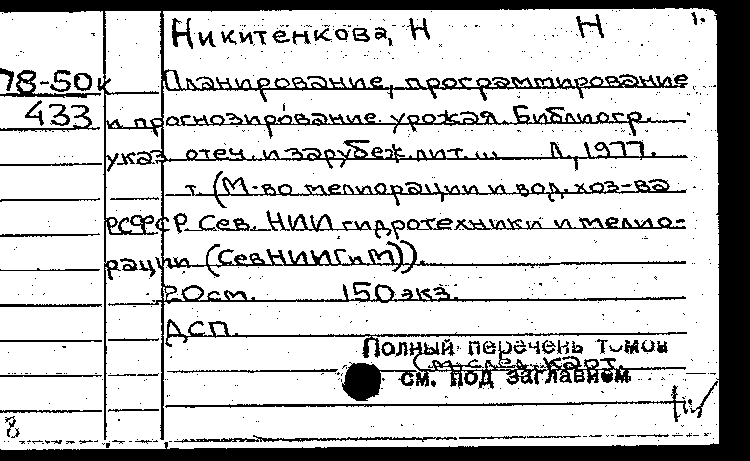 Никитенкова, Н Н 1.
78-50к Планирование, программирование
433 и прогнозирование урожая. Библиогр.
указ. отеч. и зарубеж. лит. ... Л., 1977.
т. (М-во мелиорации и вод. хоз-ва
РСФСР. Сев. НИИ гидротехники и мелио-
рации (СевНИИГиМ)).
20 см. 150 экз.
ДСП.
Полный перечень томов
см. под заглавием
8